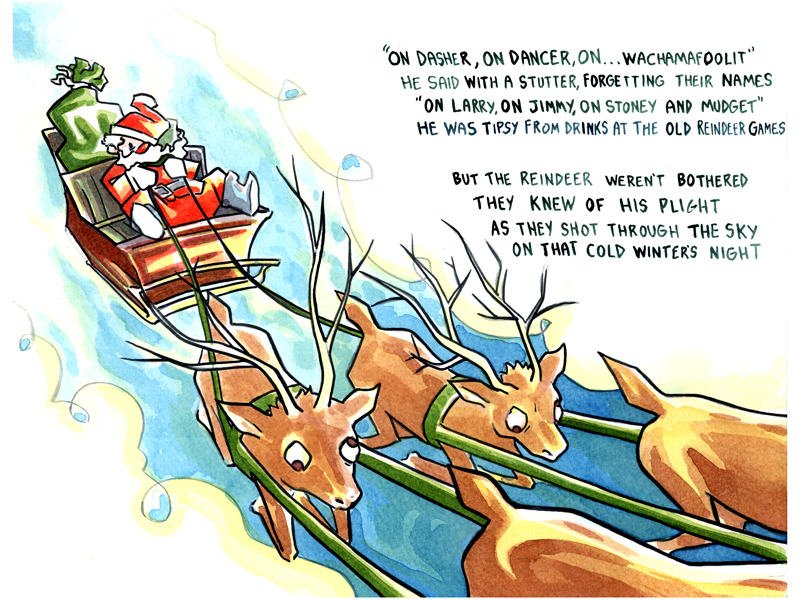 "ON DASHER, ON DANCER, ON...WACHAMAFOOLIT"
HE SAID WITH A STUTTER, FORGETTING THEIR NAMES
"ON LARRY, ON JIMMY, ON STONEY AND MUDGET"
HE WAS TIPSY FROM DRINKS AT THE OLD REINDEER GAMES
BUT THE REINDEER WEREN'T BOTHERED
THEY KNEW OF HIS PLIGHT
AS THEY SHOT THROUGH THE SKY
ON THAT COLD WINTER'S NIGHT